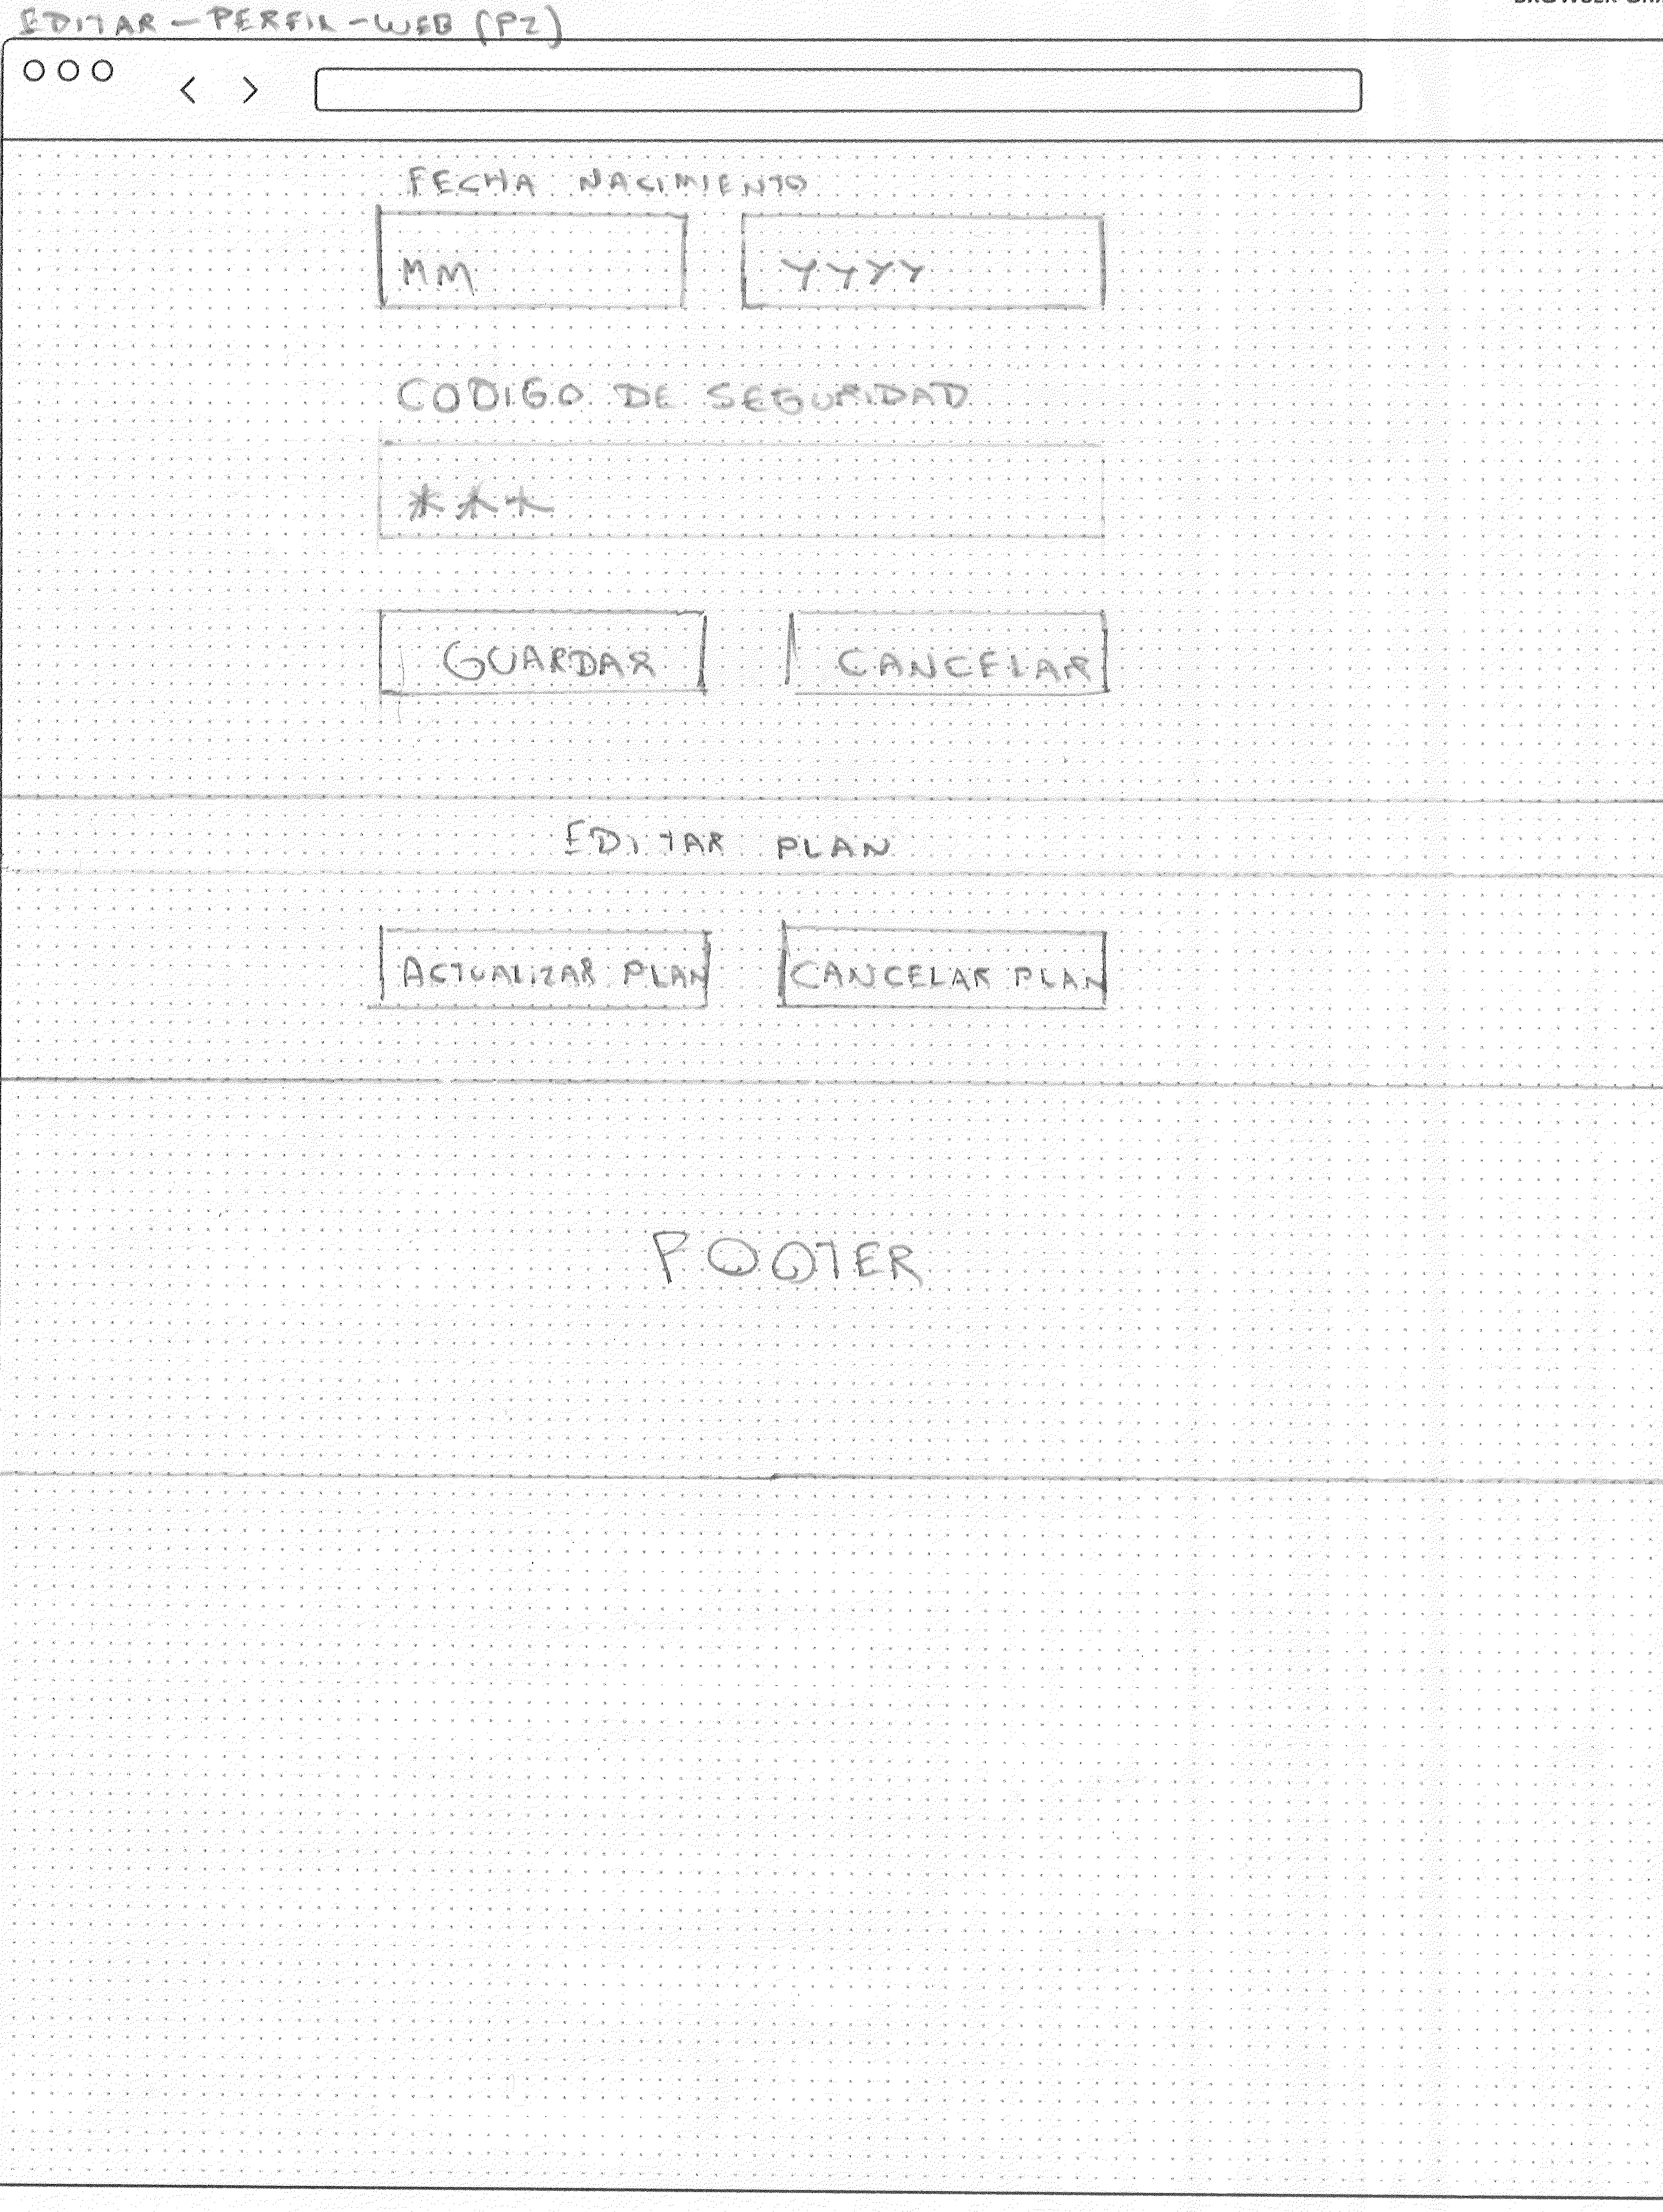 EDITAR - PERFIL - WEB (P2)
FECHA NACIMIENTO
MM YYYY
CODIGO DE SEGURIDAD
***
GUARDAR CANCELAR
EDITAR PLAN
ACTUALIZAR PLAN CANCELAR PLAN
FOOTER